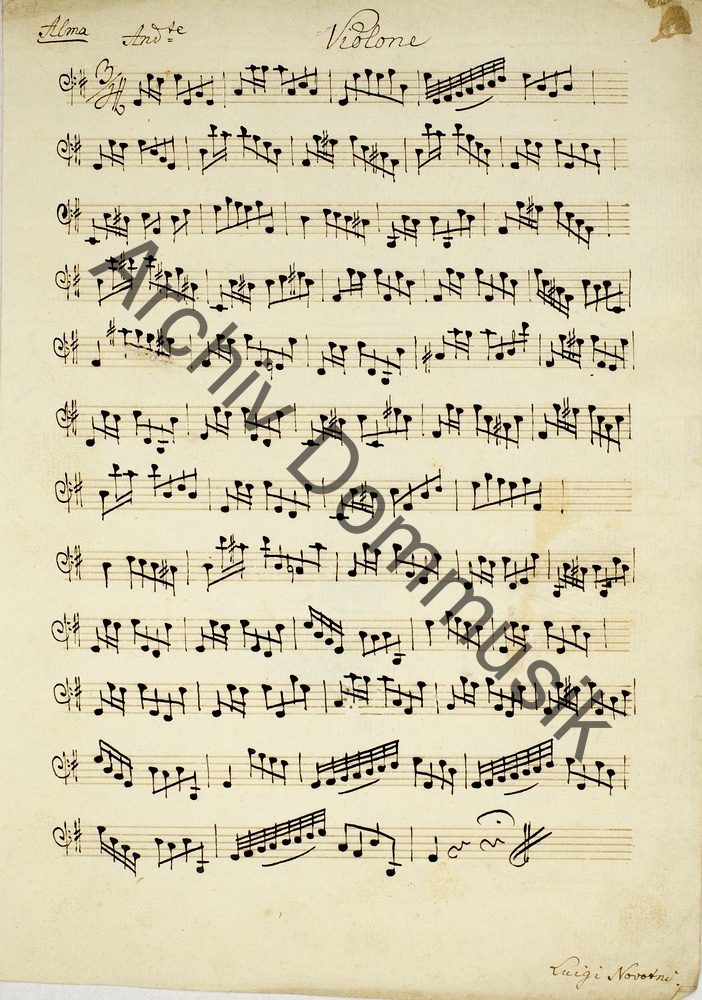 Alma Andte Violone
3/4
Archiv Dommusik
Luigi Novotni.